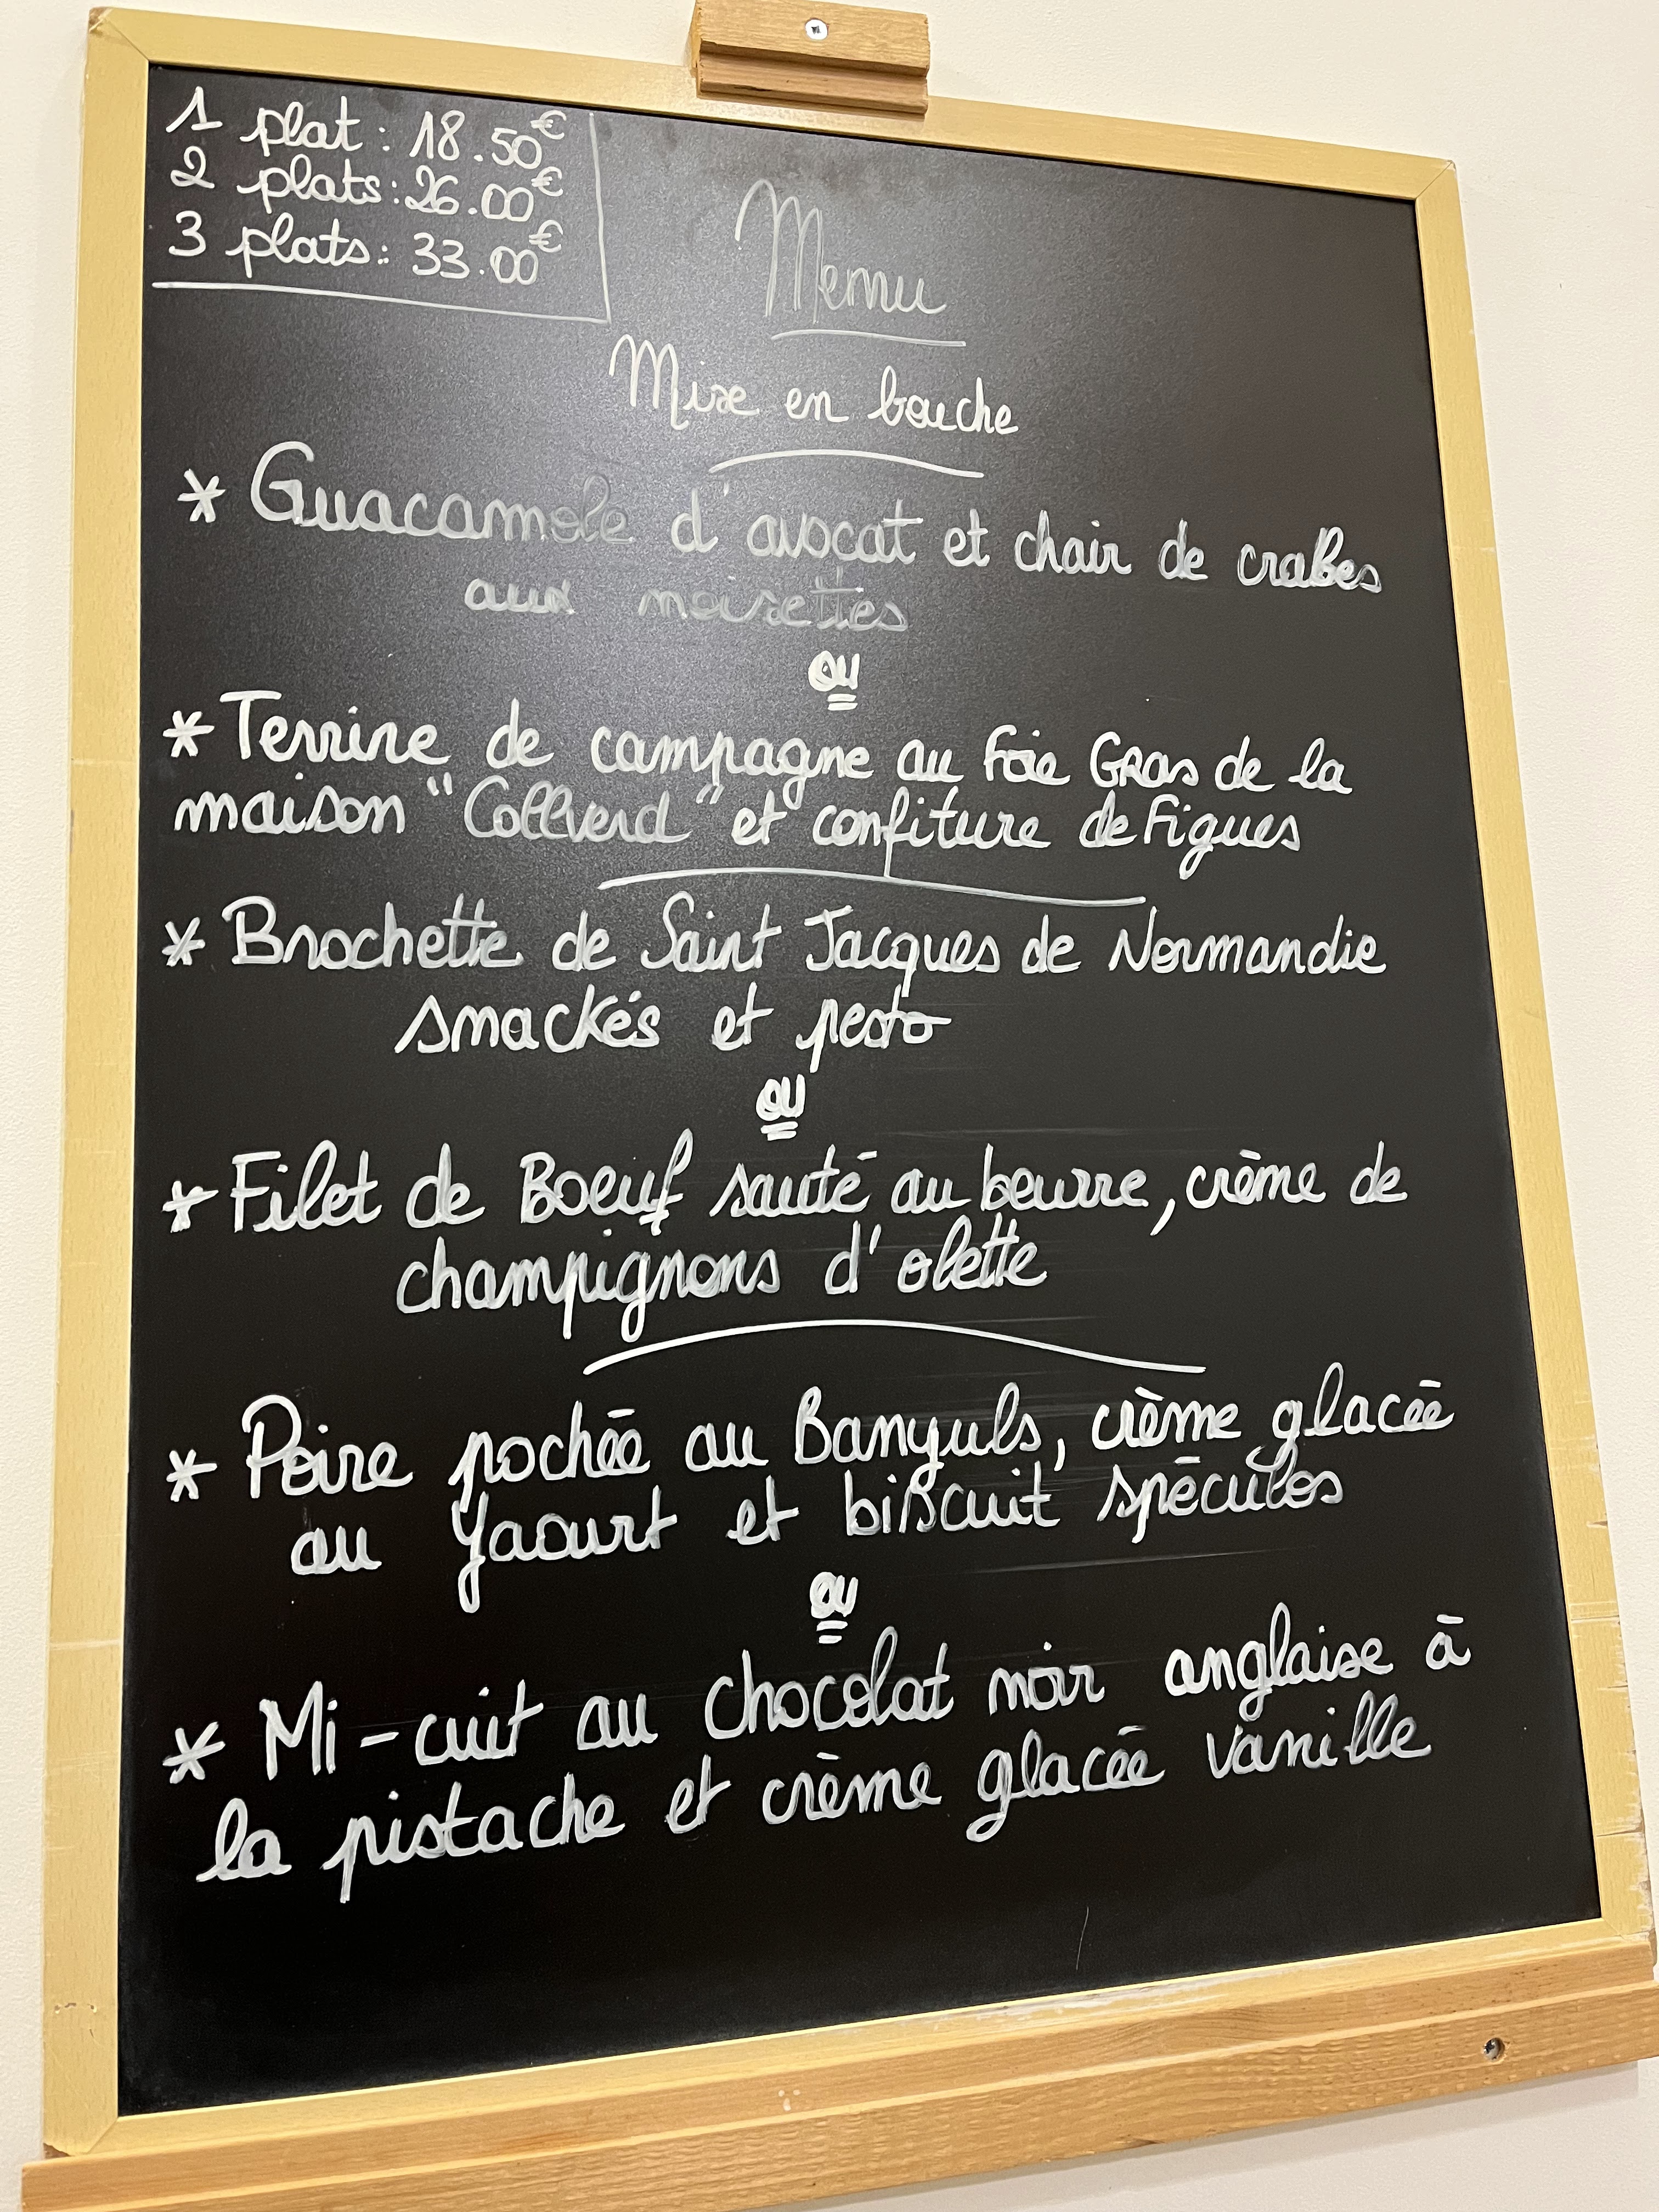 1 plat : 18.50€
2 plats : 26.00€
3 plats : 33.00€
Menu
Mise en bouche
* Guacamole d'avocat et chair de crabes
aux noisettes
ou
* Terrine de campagne au Foie Gras de la
maison "Collverd" et confiture de Figues
* Brochette de Saint Jacques de Normandie
smackés et pesto
ou
* Filet de Boeuf sauté au beurre, crème de
champignons d'olette
* Poire pochée au Banyuls, crème glacée
au Yaourt et biscuit spéculos
ou
* Mi-cuit au chocolat noir anglaise à
la pistache et crème glacée vanille